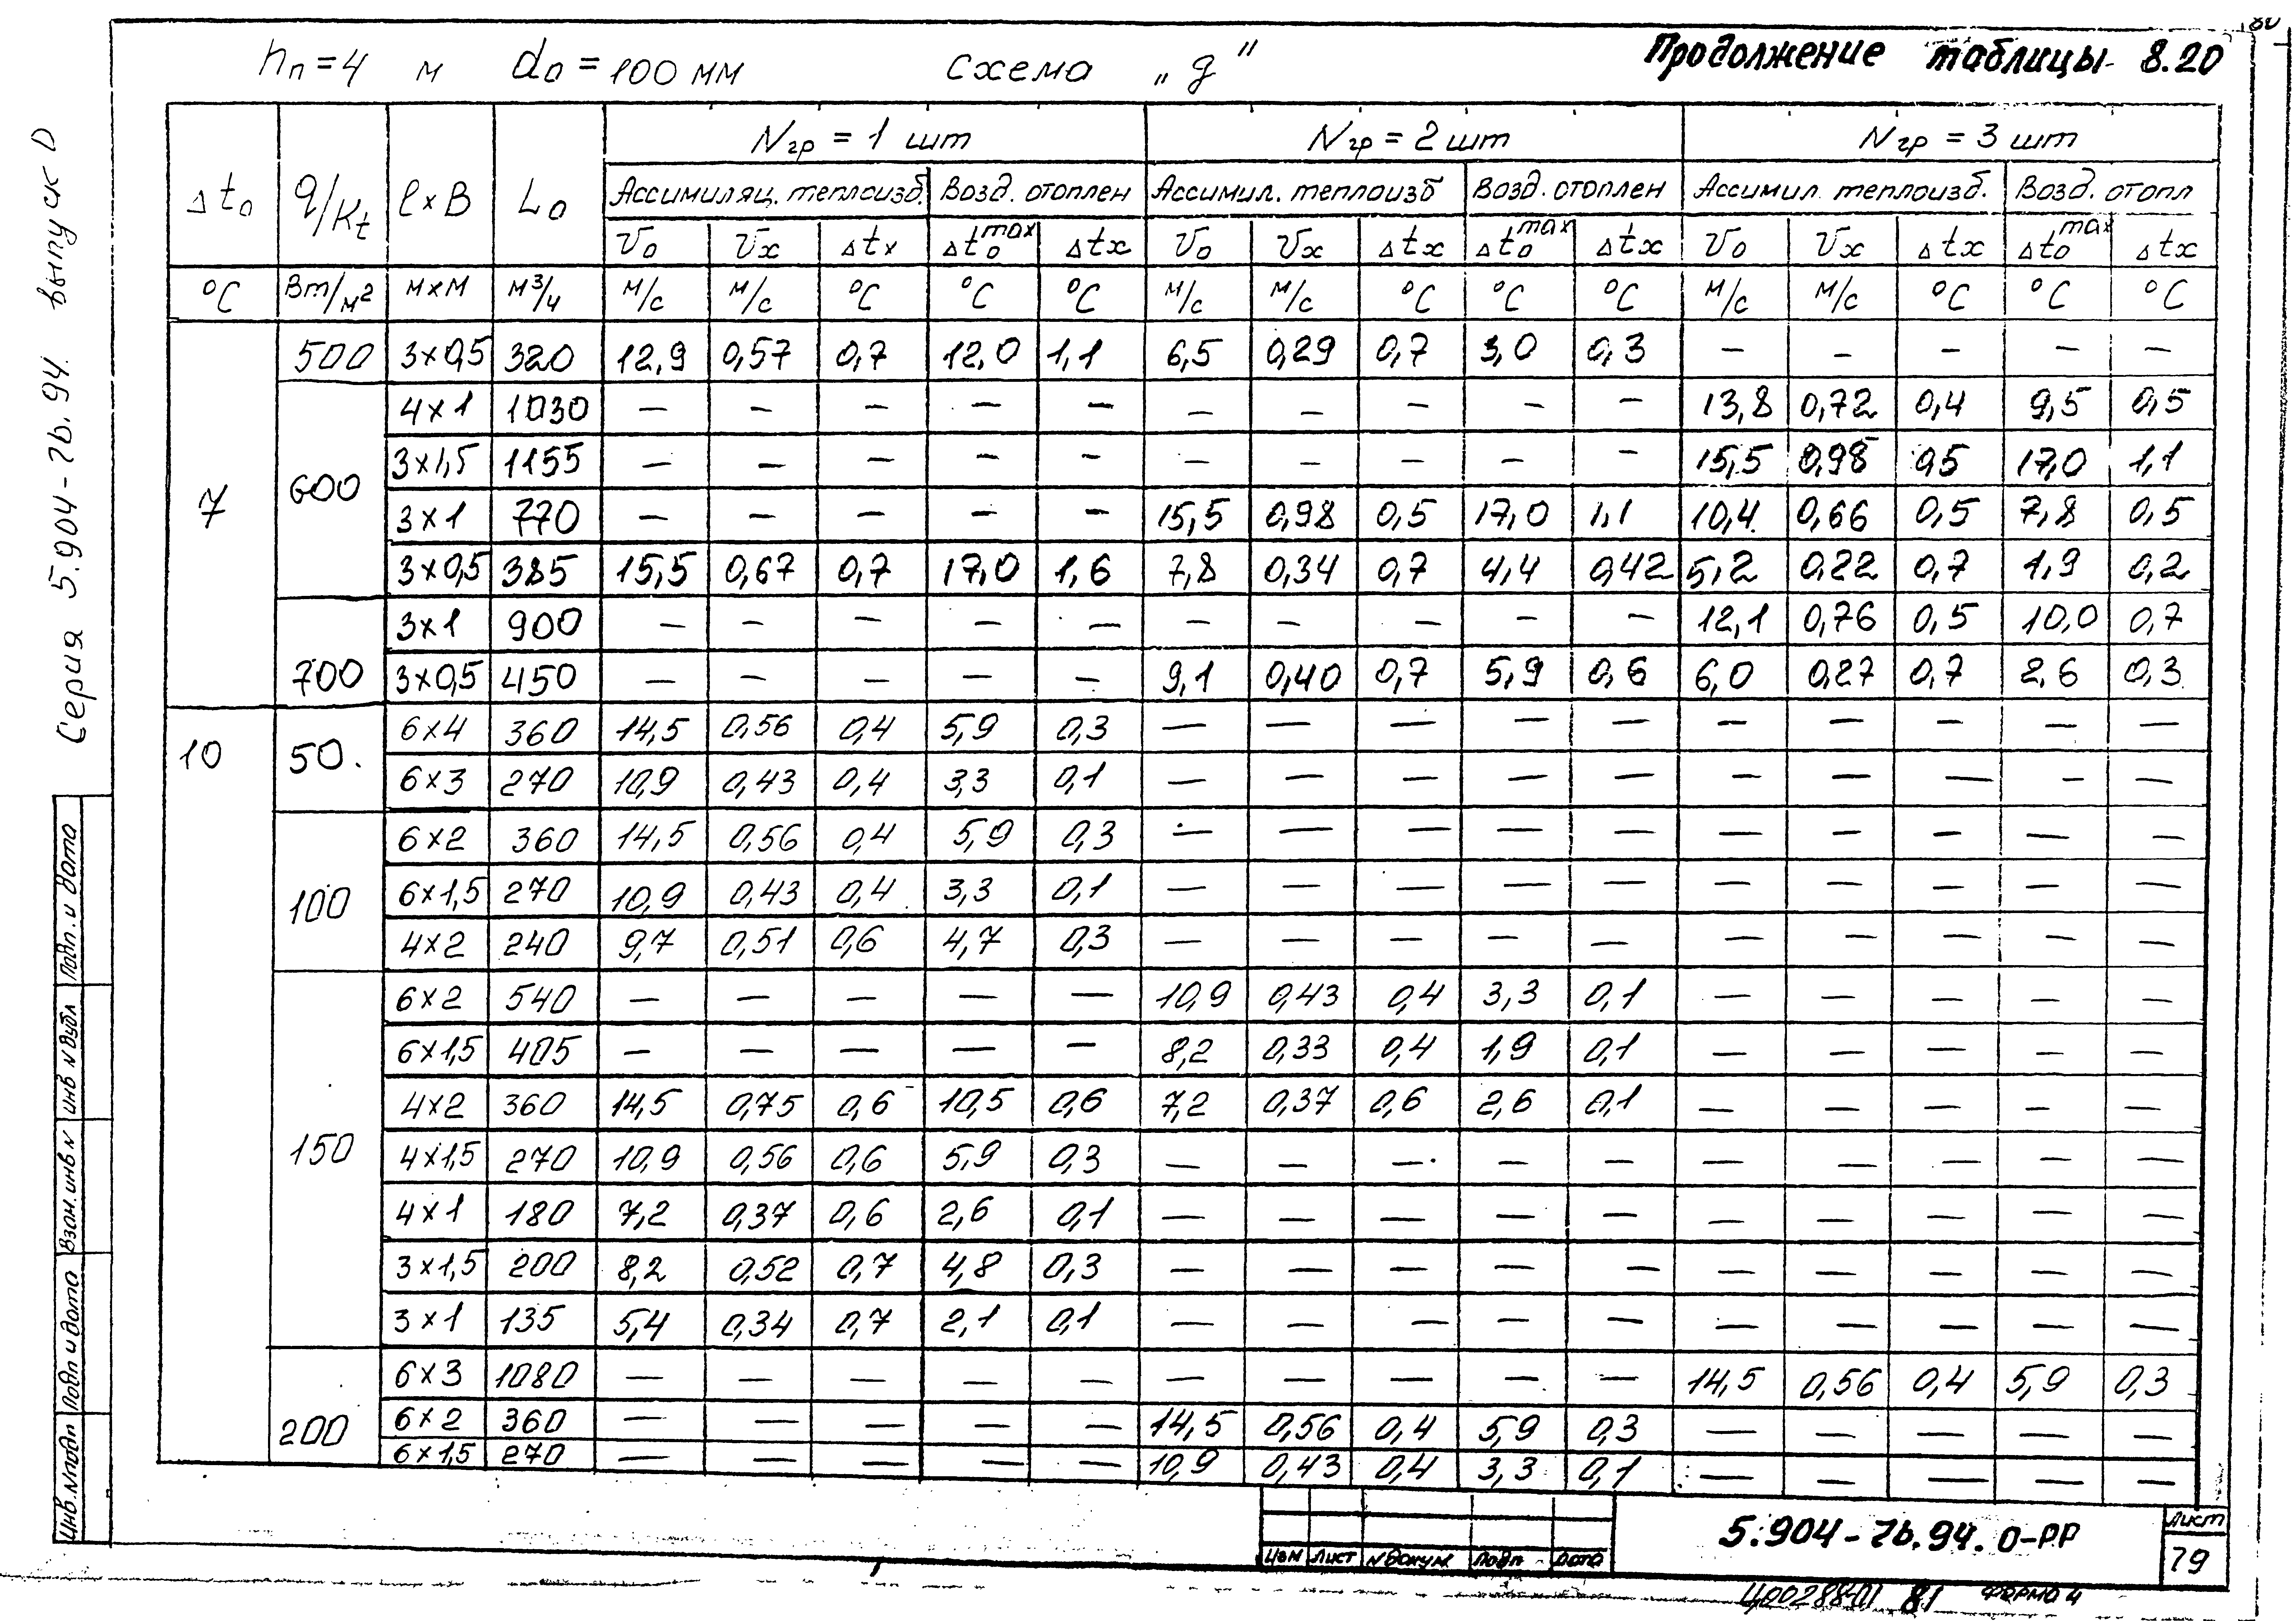 80
hп = 4 м d₀ = 100 мм схема „g”
Продолжение таблицы 8.20
Серия 5.904-7b.94. выпуск D
Δt₀ q/Kt ℓ×B L₀ Nгр = 1 шт Nгр = 2 шт Nгр = 3 шт
Ассимиляц. теплоизб. Возд. отоплен Ассимил. теплоизб Возд. отоплен Ассимил. теплоизб. Возд. отопл
V₀ Vx Δtx Δt₀max Δtx V₀ Vx Δtx Δt₀max Δtx V₀ Vx Δtx Δt₀max Δtx
°C Вт/м² м×м м³/ч м/с м/с °C °C °C м/с м/с °C °C °C м/с м/с °C °C °C
7 500 3×0,5 320 12,9 0,57 0,7 12,0 1,1 6,5 0,29 0,7 3,0 0,3 — — — — —
600 4×1 1030 — — — — — — — — — — 13,8 0,72 0,4 9,5 0,5
3×1,5 1155 — — — — — — — — — — 15,5 0,98 0,5 17,0 1,1
3×1 770 — — — — — 15,5 0,98 0,5 17,0 1,1 10,4 0,66 0,5 7,8 0,5
3×0,5 385 15,5 0,67 0,7 17,0 1,6 7,8 0,34 0,7 4,4 0,42 5,2 0,22 0,7 1,9 0,2
700 3×1 900 — — — — — — — — — — 12,1 0,76 0,5 10,0 0,7
3×0,5 450 — — — — — 9,1 0,40 0,7 5,9 0,6 6,0 0,27 0,7 2,6 0,3
10 50. 6×4 360 14,5 0,56 0,4 5,9 0,3 — — — — — — — — — —
6×3 270 10,9 0,43 0,4 3,3 0,1 — — — — — — — — — —
100 6×2 360 14,5 0,56 0,4 5,9 0,3 — — — — — — — — — —
6×1,5 270 10,9 0,43 0,4 3,3 0,1 — — — — — — — — — —
4×2 240 9,7 0,51 0,6 4,7 0,3 — — — — — — — — — —
150 6×2 540 — — — — — 10,9 0,43 0,4 3,3 0,1 — — — — —
6×1,5 405 — — — — — 8,2 0,33 0,4 1,9 0,1 — — — — —
4×2 360 14,5 0,75 0,6 10,5 0,6 7,2 0,37 0,6 2,6 0,1 — — — — —
4×1,5 270 10,9 0,56 0,6 5,9 0,3 — — — — — — — — — —
4×1 180 7,2 0,37 0,6 2,6 0,1 — — — — — — — — — —
3×1,5 200 8,2 0,52 0,7 4,8 0,3 — — — — — — — — — —
3×1 135 5,4 0,34 0,7 2,1 0,1 — — — — — — — — — —
200 6×3 1080 — — — — — — — — — — 14,5 0,56 0,4 5,9 0,3
6×2 360 — — — — — 14,5 0,56 0,4 5,9 0,3 — — — — —
6×1,5 270 — — — — — 10,9 0,43 0,4 3,3 0,1 — — — — —
Подп. и дата
Инв N дубл
Взам. инв N
Подп и дата
Инв. N подп
Изм Лист N докум. Подп Дата
5.904-7b.94. 0-РР
Лист
79
Ц00288-01 81 Форма 4